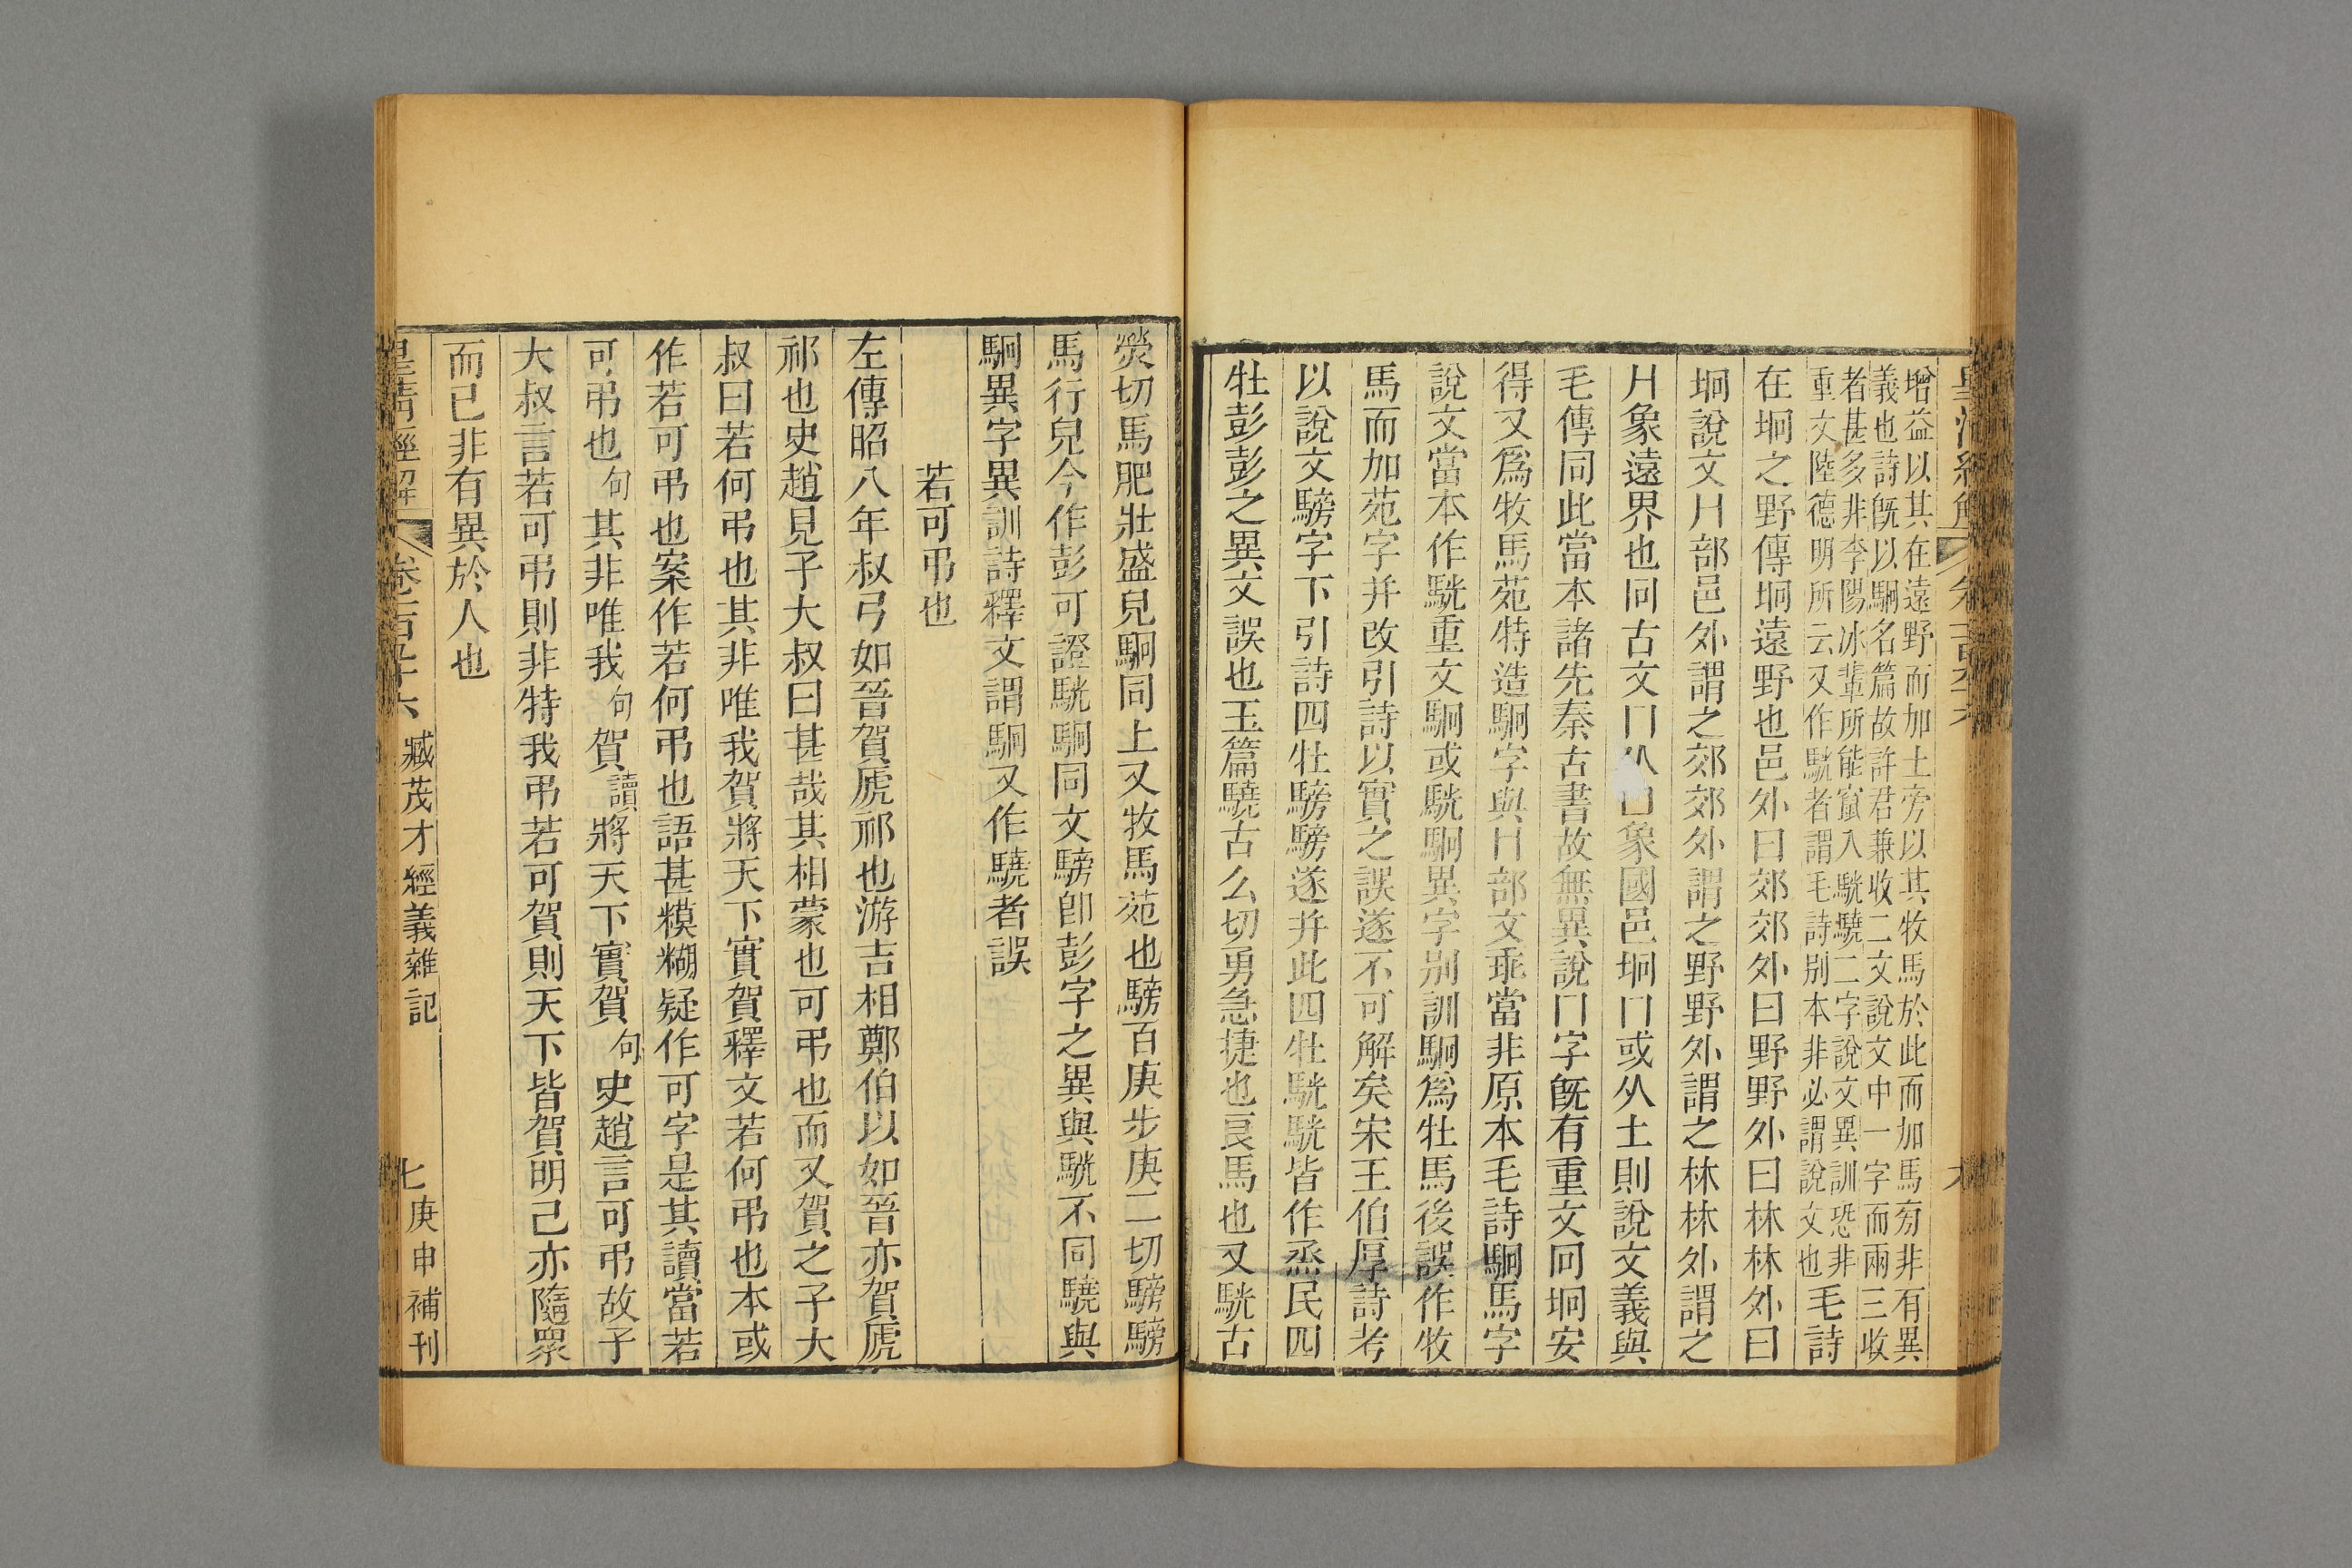 增益以其在遠野而加土旁以其牧馬於此而加馬旁非有異
義也詩旣以駉名篇故許君兼收二文說文中一字而兩三收
者甚多非李陽冰輩所能竄入駫驍二字說文異訓恐非
重文陸德明所云又作駫者謂毛詩別本非必謂說文也毛詩
在坰之野傳坰遠野也邑外曰郊郊外曰野野外曰林林外曰
坰說文冂部邑外謂之郊郊外謂之野野外謂之林林外謂之
冂象遠界也冋古文冂从囗象國邑坰冂或从土則說文義與
毛傳同此當本諸先秦古書故無異說冂字旣有重文冋坰安
得又爲牧馬苑特造駉字與冂部文乖當非原本毛詩駉馬字
說文當本作駫重文駉或駫駉異字別訓駉爲牡馬後誤作牧
馬而加苑字幷改引詩以實之誤遂不可解矣宋王伯厚詩考
以說文騯字下引詩四牡騯騯遂幷此四牡駫駫皆作烝民四
牡彭彭之異文誤也玉篇驍古么切勇急捷也良馬也又駫古
熒切馬肥壯盛皃駉同上又牧馬苑也騯百庚步庚二切騯騯
馬行皃今作彭可證駫駉同文騯卽彭字之異與駫不同驍與
駉異字異訓詩釋文謂駉又作驍者誤
若可弔也
左傳昭八年叔弓如晉賀虒祁也游吉相鄭伯以如晉亦賀虒
祁也史趙見子大叔曰甚哉其相蒙也可弔也而又賀之子大
叔曰若何弔也其非唯我賀將天下實賀釋文若何弔也本或
作若可弔也案作若何弔也語甚糢糊疑作可字是其讀當若
可弔也句其非唯我句賀讀將天下實賀句史趙言可弔故子
大叔言若可弔則非特我弔若可賀則天下皆賀明己亦隨眾
而已非有異於人也
皇清經解 卷 臧茂才經義雜記 七 庚申補刊